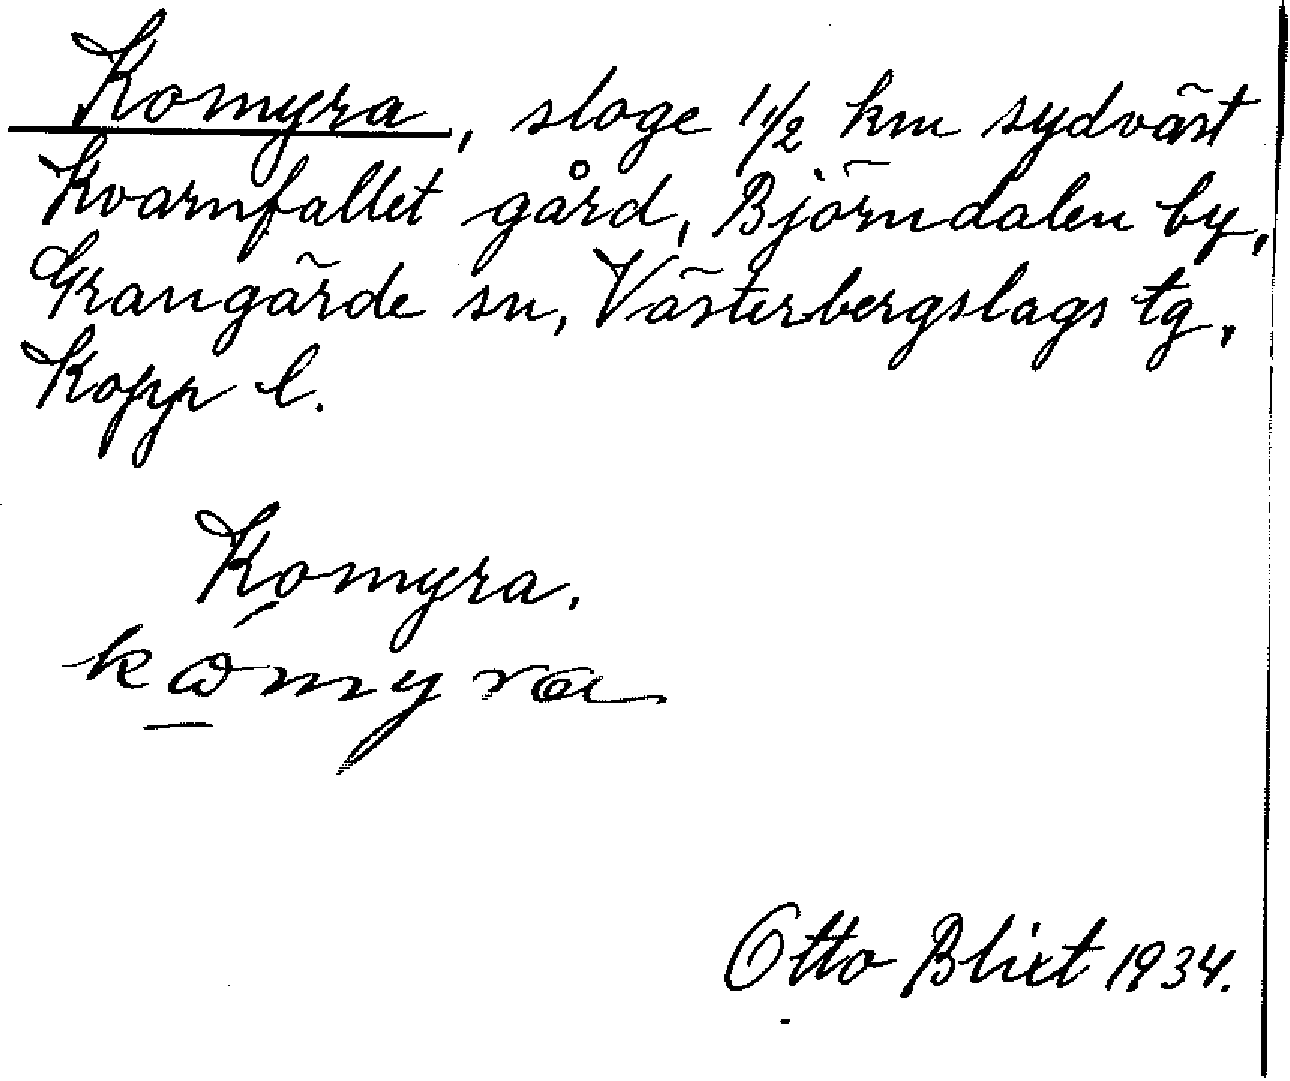 Komyra, sloge 1 1/2 km sydväst
Kvarnfallet gård, Björndalen by,
Grangärde sn, Västerbergslags tg,
Kopp l.
Komyra.
Otto Blixt 1934.